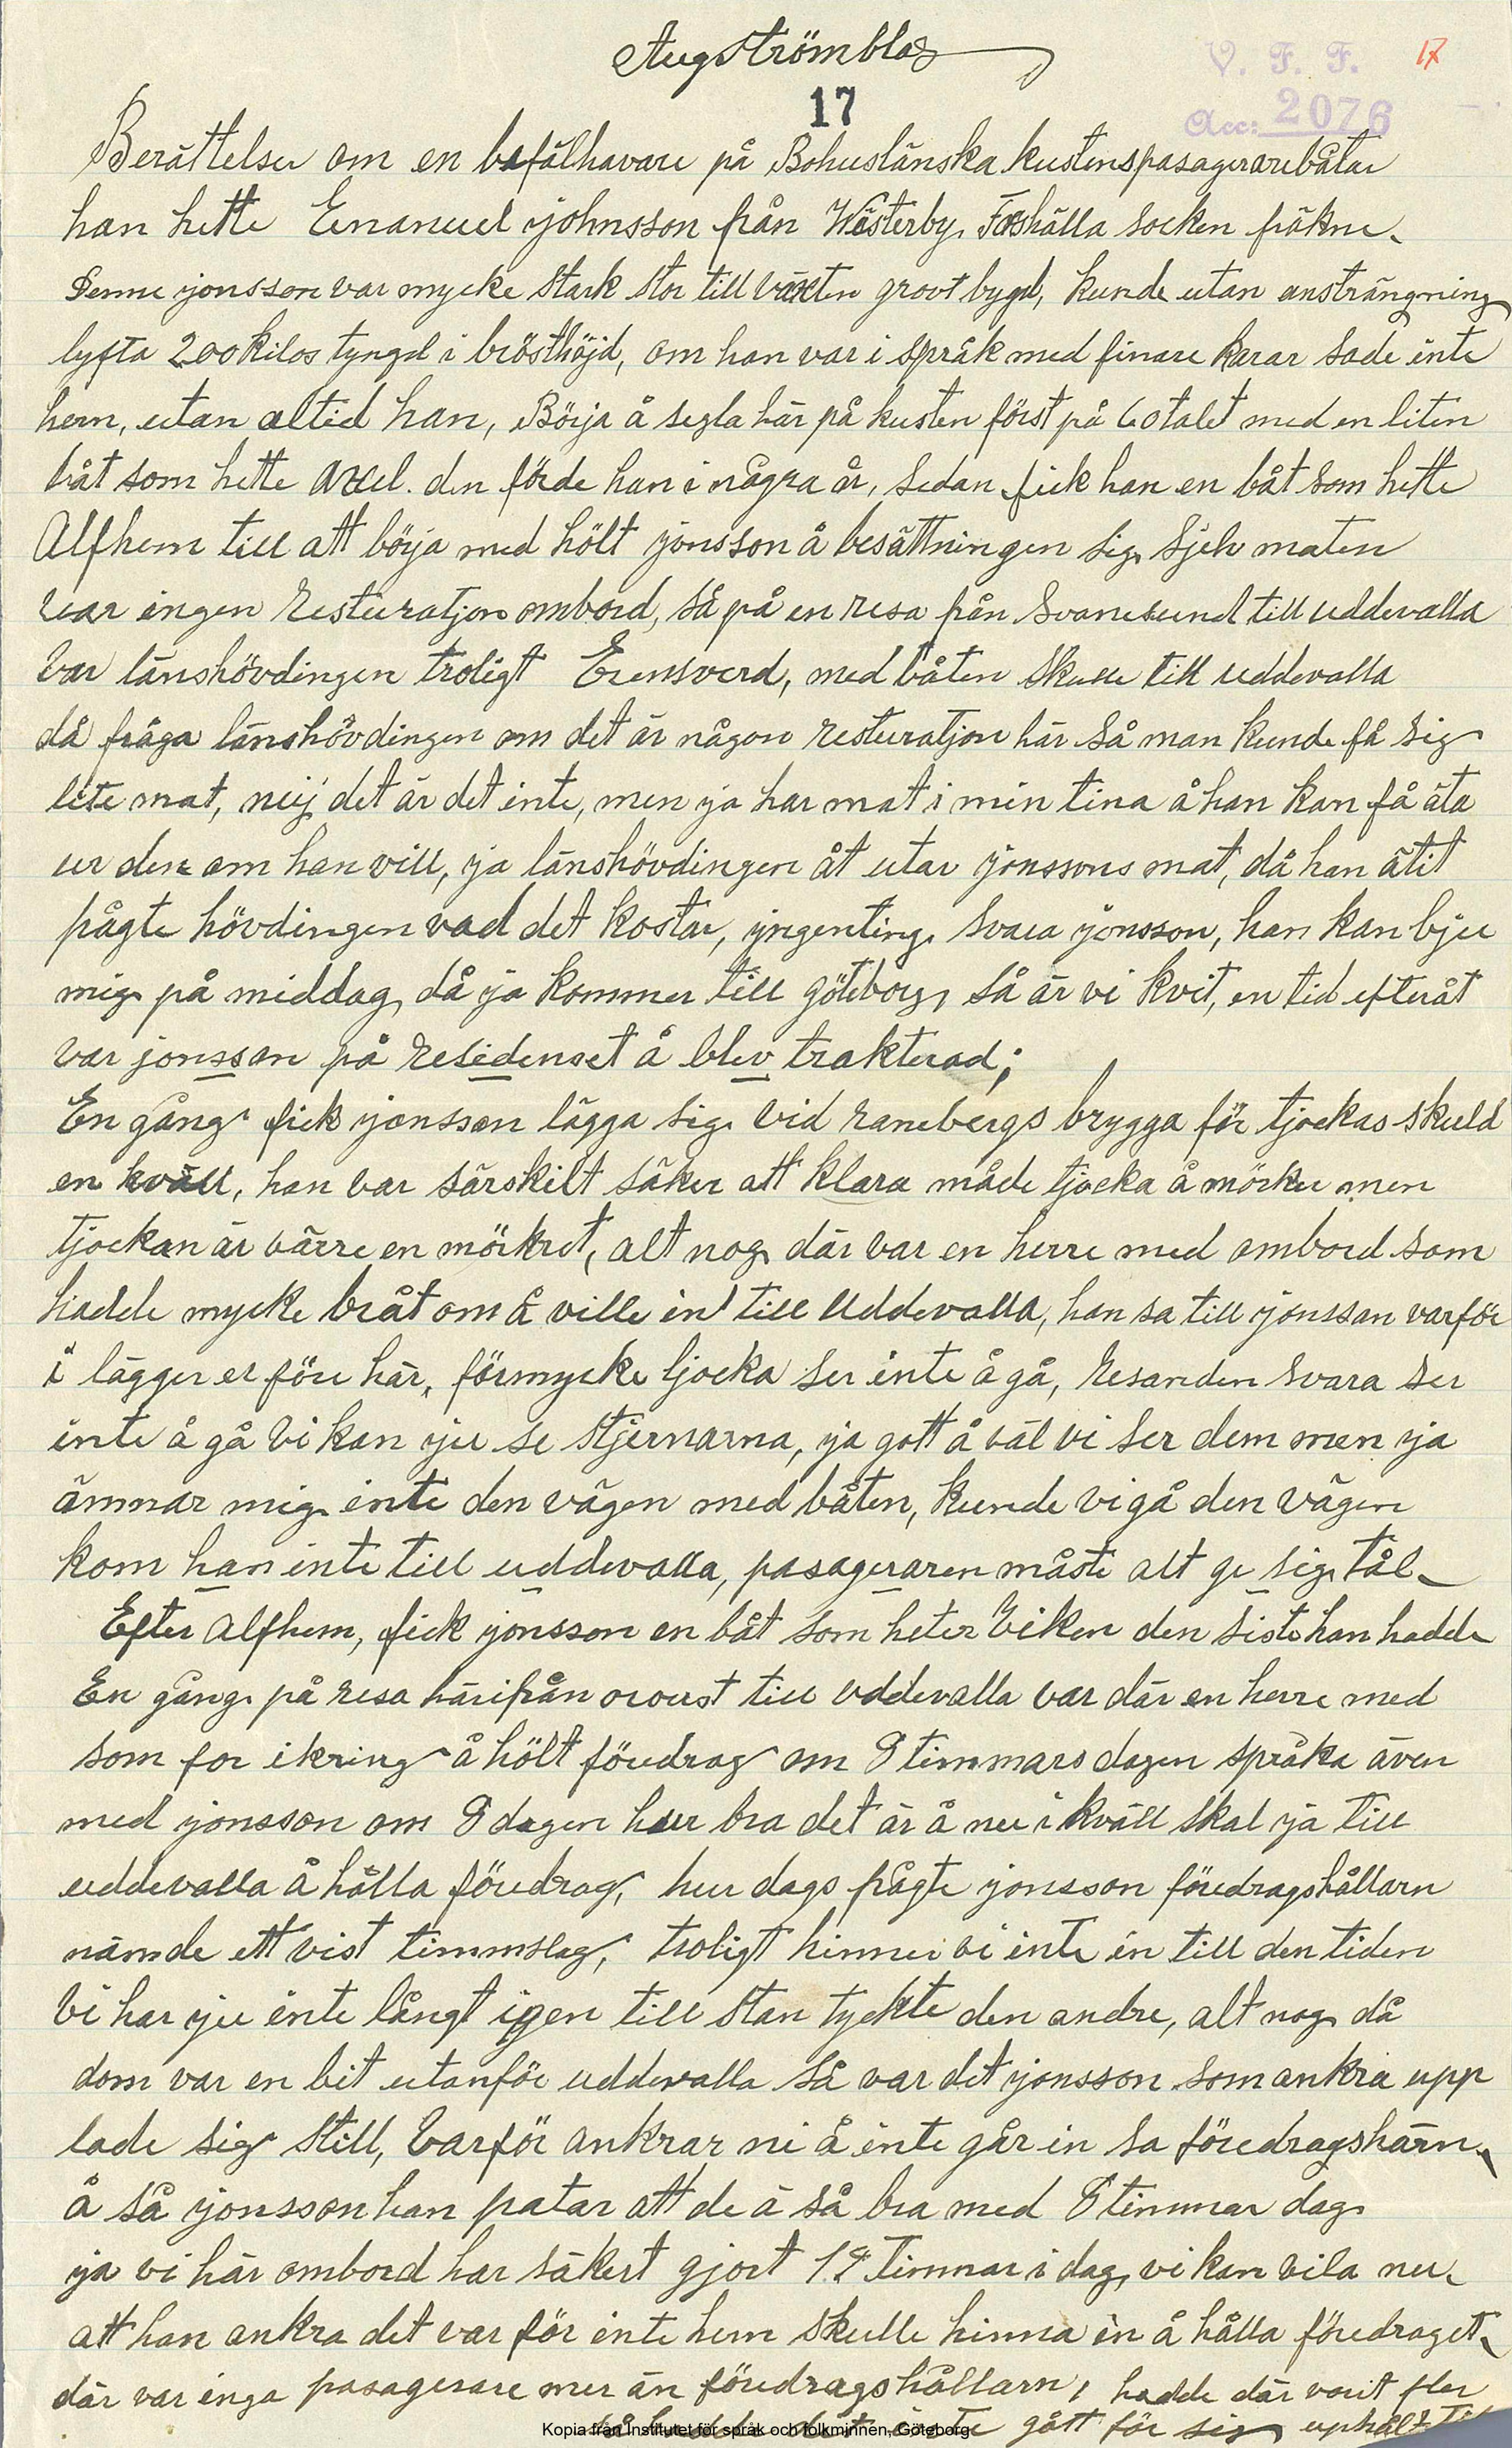 Aug Strömblad
V. F. F. 17
17
Acc: 2076
Berättelser om en befälhavare på Bohuslänska kustenspasagerarebåtar
han hette Emanuel johnsson från Westerby, Foshälla socken fräkne.
Denne jonsson var mycke stark stor till växten grovt bygd, kunde utan ansträngning
lyfta 200 kilos tyngd i brösthöjd, om han var i språk med finare karar sade inte
hern, utan altid han, Börja å segla här på kusten först på 60 talet med en liten
båt som hette Axel. den förde han i några år, sedan fick han en båt som hette
Alfhem till att börja med hölt jonsson å besättningen sig sjelv maten
var ingen resturatjon ombord, så på en resa från Svanesund till uddevalla
var länshövdingen troligt Erensverd, med båten skulle till uddevalla
då fråga länshövdingen om det är någon resturatjon här så man kunde få sig
lite mat, nej det är det inte, men ja har mat i min tina å han kan få äta
ur den om han vill, ja länshövdingen åt utar jonssons mat, då han ätit
frågte hövdingen vad det kostar, yngenting svara jonsson, han kan bju
mig på middag, då ja kommer till göteborg, så är vi kvit, en tid efteråt
var jonsson på residenset å blev trakterad;
En gång fick jonsson lägga sig vid ranebergs brygga för tjockas skuld
en kväll, han var särskilt säker att klara både tjocka å mörker men
tjockan är värre en mörkret, alt nog där var en herre med ombord som
hadde mycke bråt om å ville in till Uddevalla, han sa till jonsson varför
i lägger er före här, förmycke tjocka ser inte å gå, resanden svara ser
inte å gå vi kan ju se stjernarna, ja gott å väl vi ser dem men ja
ämnar mig inte den vägen med båten, kunde vi gå den vägen
kom han inte till uddevalla, pasageraren måste alt ge sig tål
Efter Alfhem, fick jonsson en båt som heter Viken den siste han hadde
En gång på resa härifrån oroust till uddevalla var där en herre med
som for ikring å hölt föredrag om 8 timmars dagen språka även
med jonsson om 8 dagen hur bra det är å nu i kväll skal ja till
uddevalla å hålla föredrag, hur dags frågte jonsson föredragshållarn
nämde ett vist timmslag, troligt hinner vi inte in till den tiden
vi har ju inte långt igen till stan tyckte den andre, alt nog då
dom var en bit utanför uddevalla så var det jonsson som ankra upp
lade sig still, Varför ankrar ni å inte går in sa föredragshärn
å så jonsson han patar att de ä så bra med 8 timmar dag
ja vi här ombord har säkert gjort 12 timmar i dag, vi kan vila nu
att han ankra det var för inte hern skulle hinna in å hålla föredraget
där var inga pasagerare mer än föredragshållarn, hadde där varit fler
gått för sig
Kopia från Institutet för språk och folkminnen, Göteborg